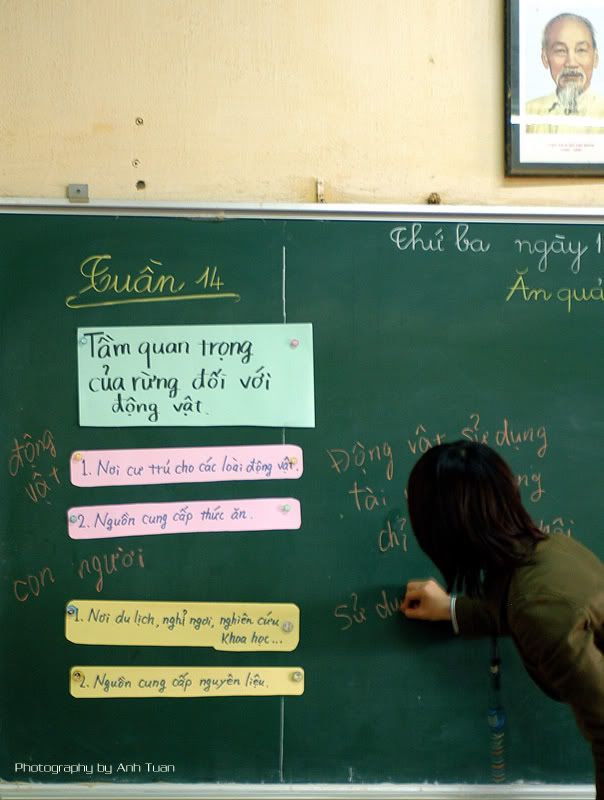 Thứ ba ngày 1
Tuần 14
Ăn quả
Tầm quan trọng
của rừng đối với
động vật.
động
vật
1. Nơi cư trú cho các loài động vật.
2. Nguồn cung cấp thức ăn.
con người
1. Nơi du lịch, nghỉ ngơi, nghiên cứu
khoa học...
2. Nguồn cung cấp nguyên liệu.
Động vật sử dụng
tài
chỉ
sử dụ
Photography by Anh Tuan